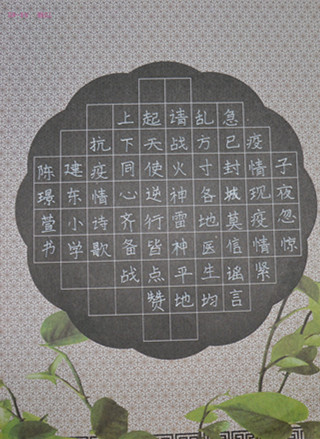 子夜忽惊
疫情现疫情紧
急已封城莫信谣言
乱方寸各地医生均
请战火神雷种平地
起天使逆行皆点赞
上下同心齐备战
抗疫情诗歌
建东小学
陈璟萱书